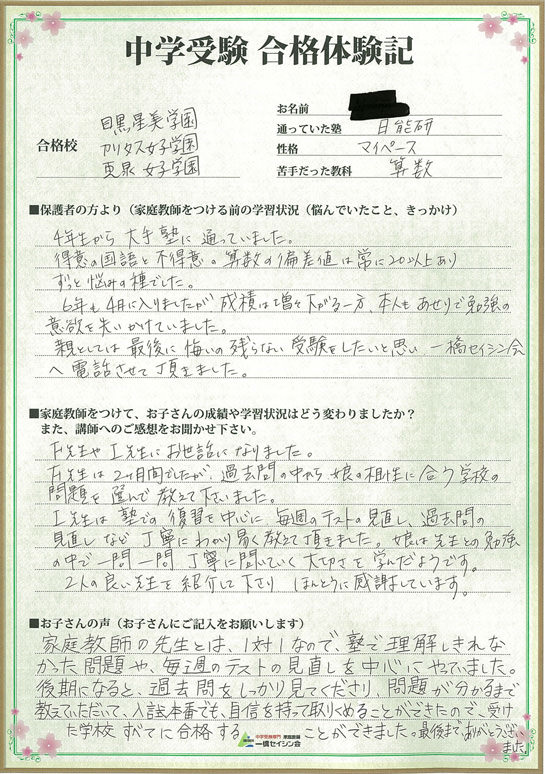 中学受験 合格体験記
合格校
目黒星美学園
カリタス女子学園
恵泉女子学園
お名前
通っていた塾 日能研
性格 マイペース
苦手だった教科 算数
■保護者の方より（家庭教師をつける前の学習状況（悩んでいたこと、きっかけ）
4年生から大手塾に通っていました。
得意の国語と不得意の算数の偏差値は常に20以上あり
ずっと悩みの種でした。
6年も4月に入りましたが成績は増々下がる一方、本人もあせりで勉強の
意欲を失いかけていました。
親としては最後に悔いの残らない受験をしたいと思い一橋セイシン会
へ電話させて頂きました。
■家庭教師をつけて、お子さんの成績や学習状況はどう変わりましたか？
また、講師へのご感想をお聞かせ下さい。
F先生やI先生にお世話になりました。
F先生は2ヶ月間でしたが、過去問の中から娘の相性に合う学校の
問題を選んで教えて下さいました。
I先生は塾での復習を中心に、毎週のテストの見直し、過去問の
見直しなど丁寧にわかり易く教えて頂きました。娘は先生との勉強
の中で一問一問丁寧に問いていく大切さを学んだようです。
2人の良い先生を紹介して下さり ほんとうに感謝しています。
■お子さんの声（お子さんにご記入をお願いします）
家庭教師の先生とは、1対1なので、塾で理解しきれな
かった問題や、毎週のテストの見直しを中心にやっていました。
後期になると、過去問をしっかり見てくださり、問題が分かるまで
教えていただいて、入試本番でも、自信を持って取りくめることができたので、受け
た学校すべてに合格することができました。最後までありがとうござい
ました。
中学受験専門 家庭教師
一橋セイシン会